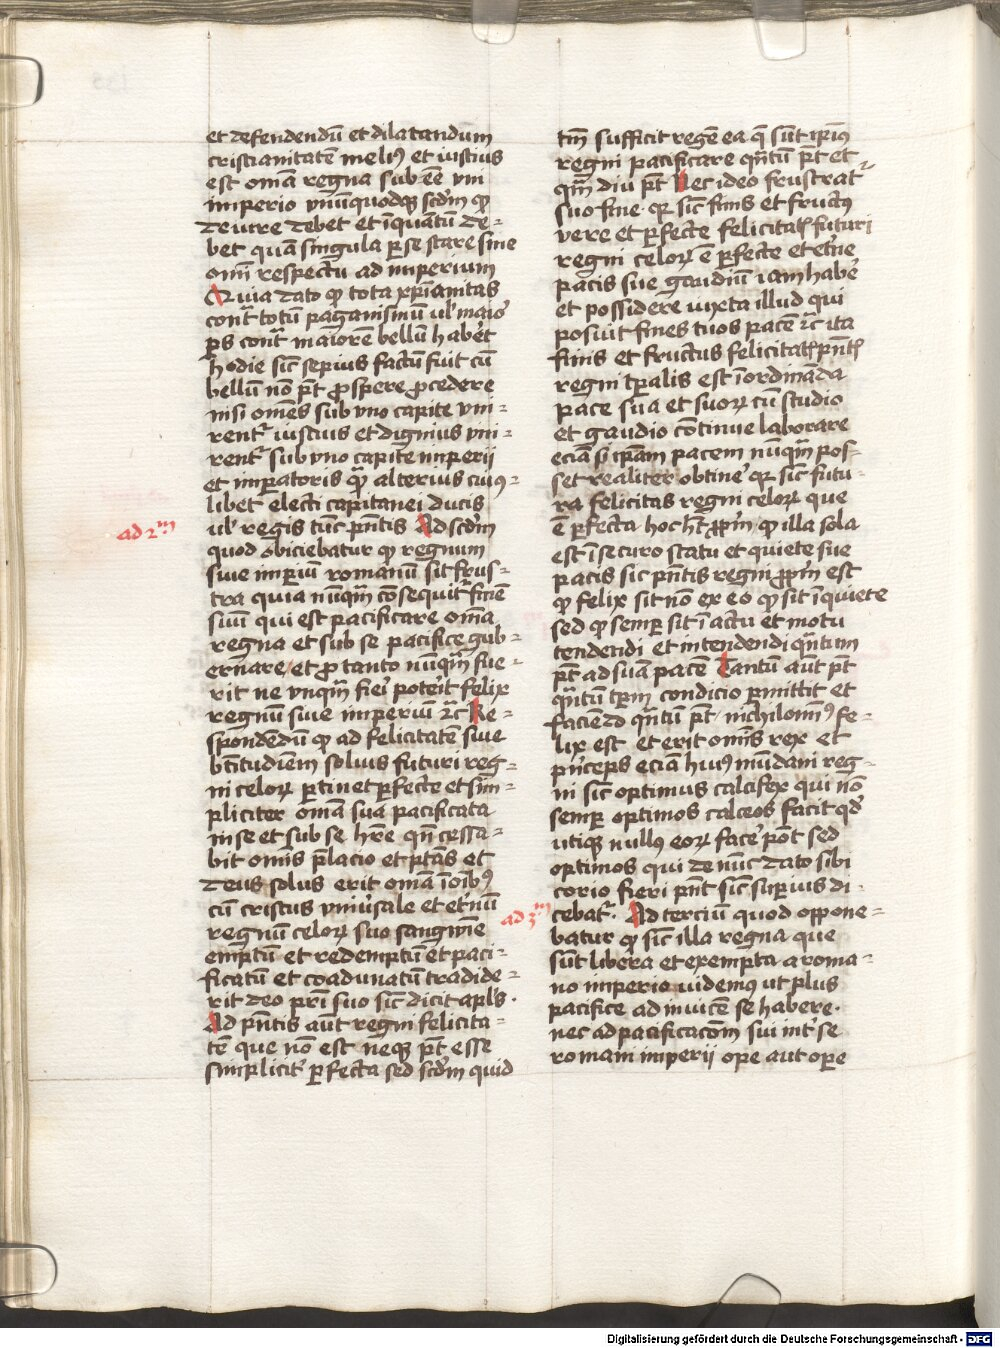 et defendendū et dilatandum
cristianitatē meliꝰ et iustius
est om̄a regna sub eē vni
imperio vnūquodqꝫ scd̄m qꝫ
de iure debet et īquantū de-
bet quā singula ꝑ se stare sine
om̄i respectu ad imperium
Quia dato qꝫ tota xp̄ianitas
cont̄ totū paganismū ul' maio'
ꝑs cont̄ maiorē bellū hab'et
hodie sic̄ sepius factū fuit cū
bellū nō pt̄ ꝓspere ꝓcedere
nisi om̄es sub vno capite vni-
rent᷑ iustius et dignius vni-
rent᷑ sub vno capite imperii
et imꝑatoris qꝫ alterius cuiꝰ-
libet electi capitanei ducis
ul' regis tūc pn̄tis Ad scd̄m
ad 2ᵐ
quod obiciebatur qꝫ regnum
siue imꝑiū romanū sit frus-
tra quia nūqm̄ consequit᷑ finē
suū qui est pacificare om̄a
regna et sub se pacifice gub-
ernare / et ꝓ tanto nūqm̄ fue-
rit ne vnqm̄ fie'i pot'eit felix
regnū siue imperiū ⁊c̄ Re-
spondēdū qꝫ ad felicitatē siue
bt̄itudiēm solius futuri reg-
ni celoꝝ ꝑtinet ꝑfecte et sim-
pliciter om̄a sua pacificata
in se et sub se hr̄e qn̄ cessa-
bit om̄is p̄lacio et ptās et
deus solus erit om̄a ī oīb᷒
cū cristus vniu'sale et et'nū
regnū celoꝝ suo sangwīe
emptū et redemptū et paci-
ficatū et coadunatū tradide-
rit deo pr̄i suo sic̄ dicit apl's .
Ad pn̄tis aūt regni felicita-
tē que nō est neqꝫ pt̄ esse
simplicit' ꝑfecta sed scd̄m quid
tm̄ sufficit regē ea q̄ sūt ip̄iꝰ
regni pacificare qn̄tū pt̄ et
qm̄ diu pt̄ Nec ideo frustrat᷑
suo fine · qꝛ sic̄ finis et fructꝰ
vere et ꝑfecte felicitatꝭ futuri
regni celoꝝ ē ꝑfecte et et'ne
pacis sue gaudiū iam habe'
et possidere iuxta illud qui
posuit fines tuos pacē ⁊c̄ ita
finis et fructus felicitatꝭ pn̄tꝭ
regni tꝑalis est ī ordināda
pace sua et suoꝝ cū studio
et gaudio cōtinue laborare
eciā si ip̄am pacem nūqm̄ pos-
set realiter obtine' qꝛ sic̄ futu-
ra felicitas regni celoꝝ que
ē ꝑfecta hoc ht̄ ꝓpm̄ qꝫ illa sola
est ī securo statu et quiete sue
pacis sic pn̄tis regni ꝓpm̄ est
qꝫ felix sit nō ex eo qꝫ sit ī quiete
sed qꝫ semꝑ sit ī actu et motu
tendendi et intendendi qn̄tum
pt̄ ad suā pacē Tantū aūt pt̄
qn̄tū tꝑm condicio ꝑmittit et
faciēdo qn̄tū pt̄ / nichilomīꝰ fe-
lix est et erit om̄is rex et
pn̄ceps eciā huiꝰ mūdani reg-
ni sic̄ optimus calcifex qui nō
semꝑ optimos calceos facit qd'
utiqꝫ nullus eoꝝ face' pōt sed
optimos qui de nūc dato sibi
corio fieri pn̄t sic̄ suꝑius di-
cebat᷑ · Ad terciū quod oppone-
ad 3ᵐ
batur qꝫ sic̄ illa regna que
sūt libera et exempta a roma-
no imperio uidemus ut plus
pacifice ad inuicē se habere ·
nec ad pacificacōm sui int' se
romani imperii ope aut oꝑe
Digitalisierung gefördert durch die Deutsche Forschungsgemeinschaft - DFG